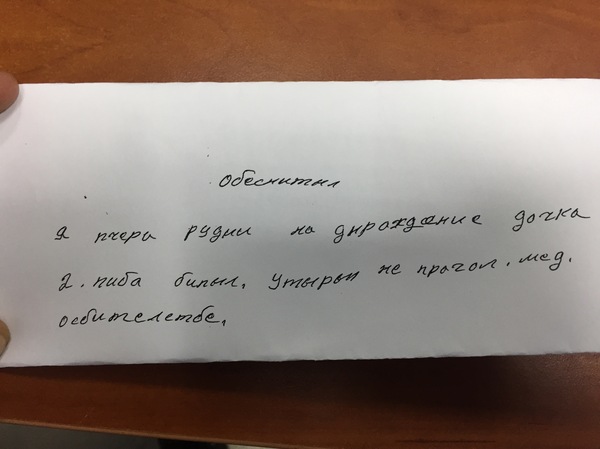 Обеснитыл
Я пчера рудни на днраждание дочка
2. пиба бипыл, утырьп не прагол. мед.
осбителетбе,